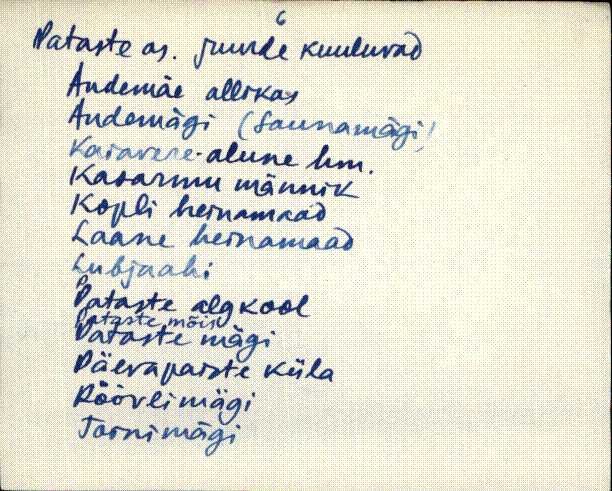 6
Pataste as. juurde kuuluvad
Andemäe allikas
Andemägi (Saunamägi)
Kaiavere-alune hm.
Kasarmu männik
Kopli heinamaad
Laane heinamaad
Lubjaahi
Pataste algkool
Pataste mõis
Pataste mägi
Päevapaiste küla
Röövlimägi
Tornimägi